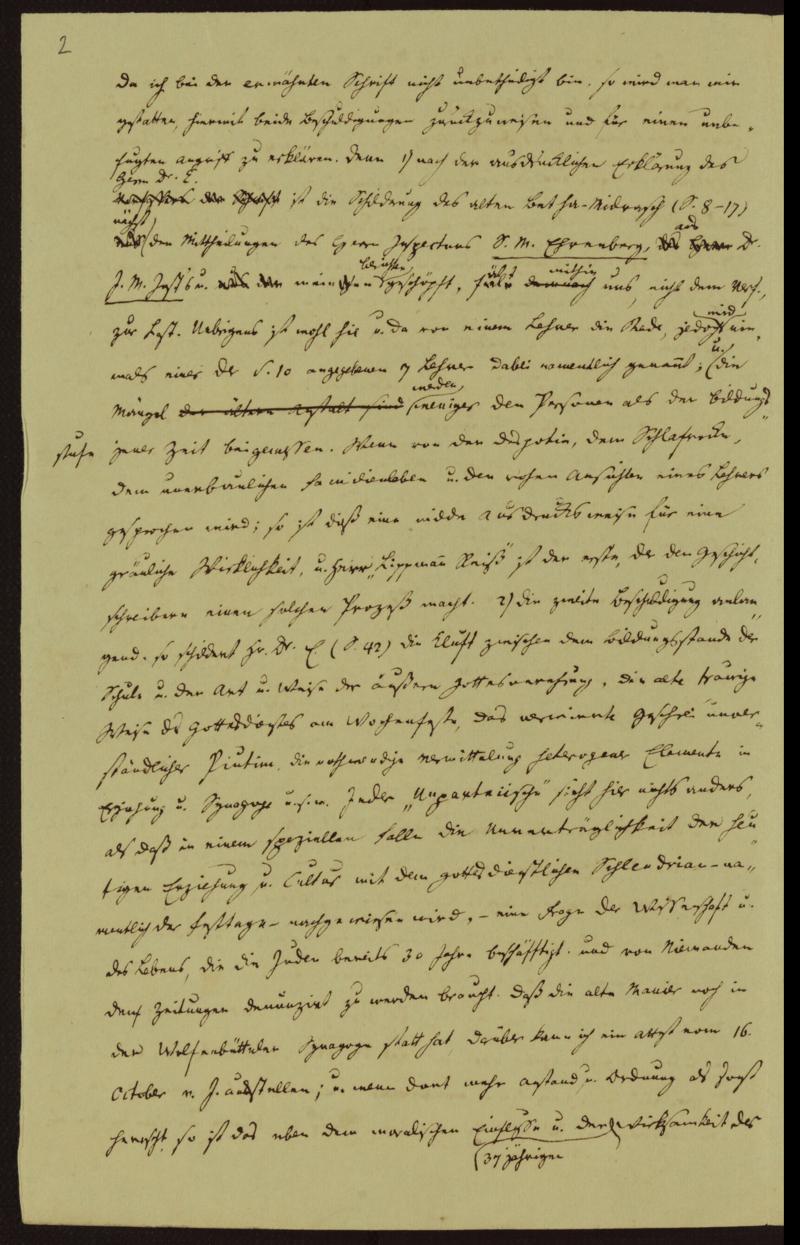 2
da ich bei der erwähnten Schrift nicht unbetheiligt bin, so wird man mir
gestatten, hiermit beide Beschuldigungen zurückzuweisen und für einen unbe-
fugten Angriff zu erklären. Denn 1) nach der ausdrücklichen Erklärung des
Herrn Dr. E.
Verfassers der Schrift ist die Schilderung des alten Beth ha-Midrasch (S. 8-17)
nächst
aus den Mittheilungen des Herrn Inspectors S. M. Ehrenberg, aus Dr.
J. M. Jost's u. meinen Berichten geschöpft, fällt mithin uns, nicht dem Verf.,
zur Last. Uebrigens ist wohl hie u. da von einem Lehrer die Rede, jedoch wird nie-
mals einer der S. 10 angegebenen 7 Lehrer dabei namentlich genannt; u. die
Mängel der ältern Anstalt sind werden weniger den Personen als der Bildungs-
stufe jener Zeit beigemessen. Wenn von der Despotie, dem Schlafrocke,
dem unerbaulichen Familienleben u. den rohen Ansichten eines Lehrers
gesprochen wird; so ist dieß eine milde Ausdrucksweise für eine
gräuliche Wirklichkeit, u. Herr "Lippmann Reiß" ist der erste, der den Geschicht-
schreibern einen solchen Prozeß macht. 2) die zweite Beschuldigung anlan-
gend, so schildert Hr. Dr. E (S. 42) die Kluft zwischen dem Bildungsstande der
Schule u. der Art u. Weise der äußern Gottesverehrung, die alte traurige
Weise des Gottesdienstes am Wochenfeste, das verwirrte Geschrei unver-
ständlicher Piutim, die nothwendige Vermittelung heterogener Elemente in
Erziehung u. Synagoge u.s.w. Jeder "Unparteiische" sieht hier nichts anders,
als daß in einem speziellen Falle die Unverträglichkeit der heu-
tigen Erziehung u. Cultur mit dem gottesdienstlichen Schlendrian – na-
mentlich der Festtage – nachgewiesen wird, – eine Frage der Wissenschaft u.
des Lebens, die die Juden bereits 30 Jahre beschäfftigt, und von Niemanden
den Zeitungen denunzirt zu werden braucht. Daß die alte Manier noch in
der Wolfenbüttler Synagoge statt hat, darüber kann ich ein Attest vom 16.
October v. J. ausstellen; u. wenn dort mehr Anstand u. Ordnung als sonst
herrscht, so ist das eben dem moralischen Einflusse u. der Wirksamkeit des
37jährigen